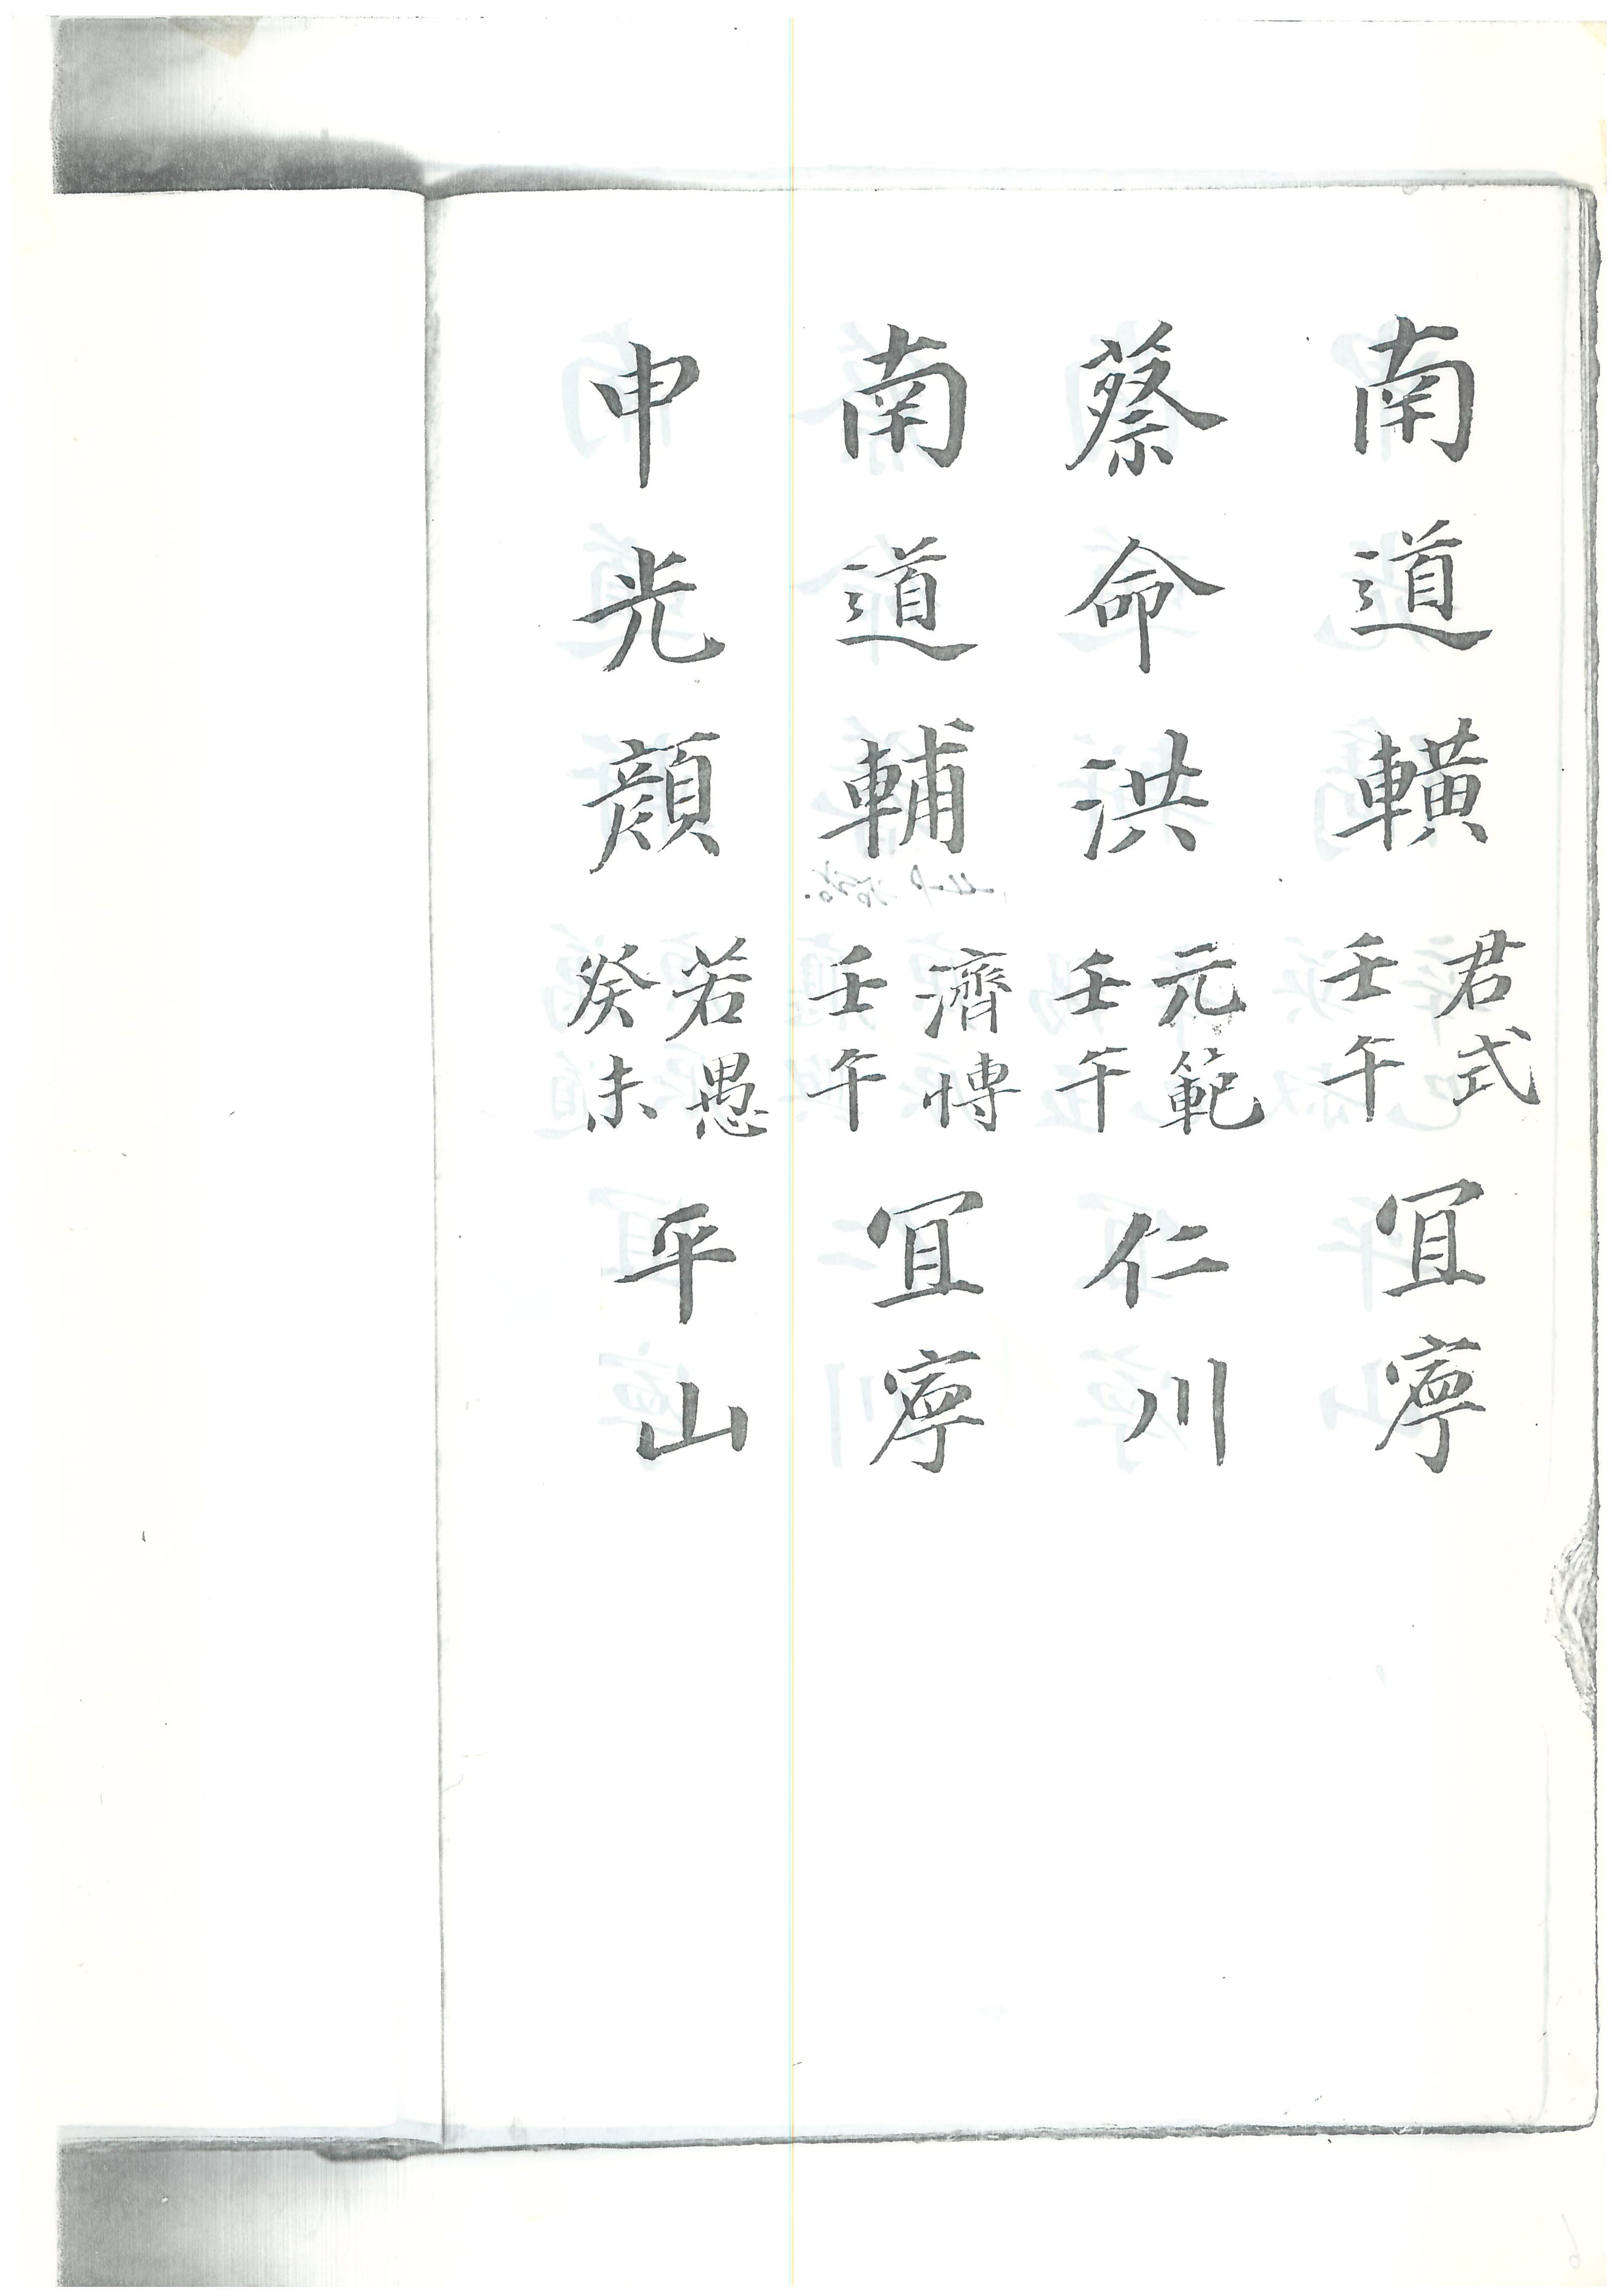 南道轒君式壬午冝寧
蔡命洪元範壬午仁川
南道輔濟博壬午冝寧
申光顔若愚癸未平山